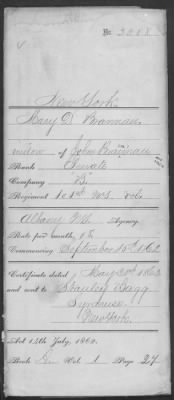 No.
New York
Mary D Brannan
widow of John Brannan
Rank Private
Company "B"
Regiment 101st N.Y. Vol.
Albany N.Y. Agency.
Rate per month, $8
Commencing September 15th 1862
Certificate dated May 20th 1863
and sent to Stanley Bagg
Syracuse
New York
Act 14th July, 1862.
Book Vol. 1 Page 27